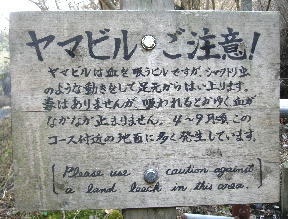 ヤマビル ご注意!
ヤマビルは血を吸うヒルですが、シャクトリ虫
のような動きをして足元からはい上ります。
毒はありませんが、吸われるとかゆく血が
なかなか止まりません。4〜9月頃、この
コース付近の地面に多く発生しています。
Please use caution against
a land leech in this area.